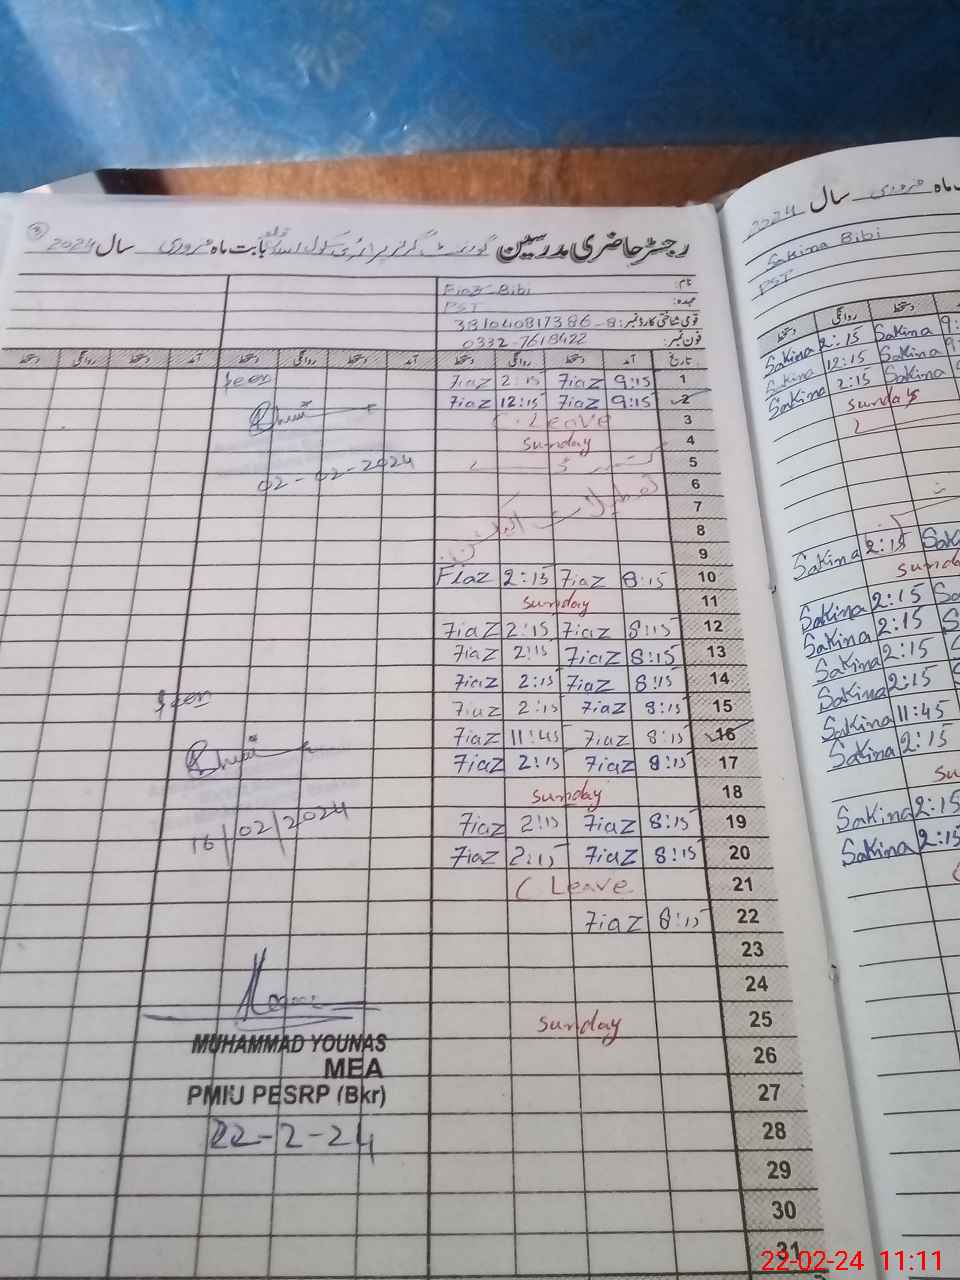 رجسٹر حاضری مدرسین گورنمنٹ گرلز پرائمری سکول بابت ماہ فروری سال 2024
نام: Fiaz Bibi
عہدہ: PST
قومی شناختی کارڈ نمبر: 381040817386-8
فون نمبر: 0332-7618422
تاریخ آمد دستخط روانگی دستخط آمد دستخط روانگی دستخط
1 9:15 Fiaz 2:15 Fiaz
2 9:15 Fiaz 12:15 Fiaz
3 C. Leave
4 Sunday
5 کشمیر ڈے
6
7 تعطیلات الیکشن
8
9
10 8:15 Fiaz 2:15 Fiaz
11 Sunday
12 8:15 Fiaz 2:15 Fiaz
13 8:15 Fiaz 2:15 Fiaz
14 8:15 Fiaz 2:15 Fiaz
15 8:15 Fiaz 2:15 Fiaz
16 8:15 Fiaz 11:45 Fiaz
17 8:15 Fiaz 2:15 Fiaz
18 Sunday
19 8:15 Fiaz 2:15 Fiaz
20 8:15 Fiaz 2:15 Fiaz
21 C Leave
22 8:15 Fiaz
23
24
25 Sunday
26
27
28
29
30
31
Seen
02-02-2024
Seen
16/02/2024
MUHAMMAD YOUNAS
MEA
PMIU PESRP (Bkr)
22-2-24
ماہ فروری سال 2024
Sakina Bibi
PST
دستخط روانگی دستخط
Sakina 2:15 Sakina 9:
Sakina 12:15 Sakina 9:
Sakina 2:15 Sakina
Sunday
Sakina 2:15 Sak
Sunda
Sakina 2:15 Sa
Sakina 2:15 S
Sakina 2:15
Sakina 2:15
Sakina 11:45
Sakina 2:15
Su
Sakina 2:15
Sakina 2:15
22-02-24 11:11